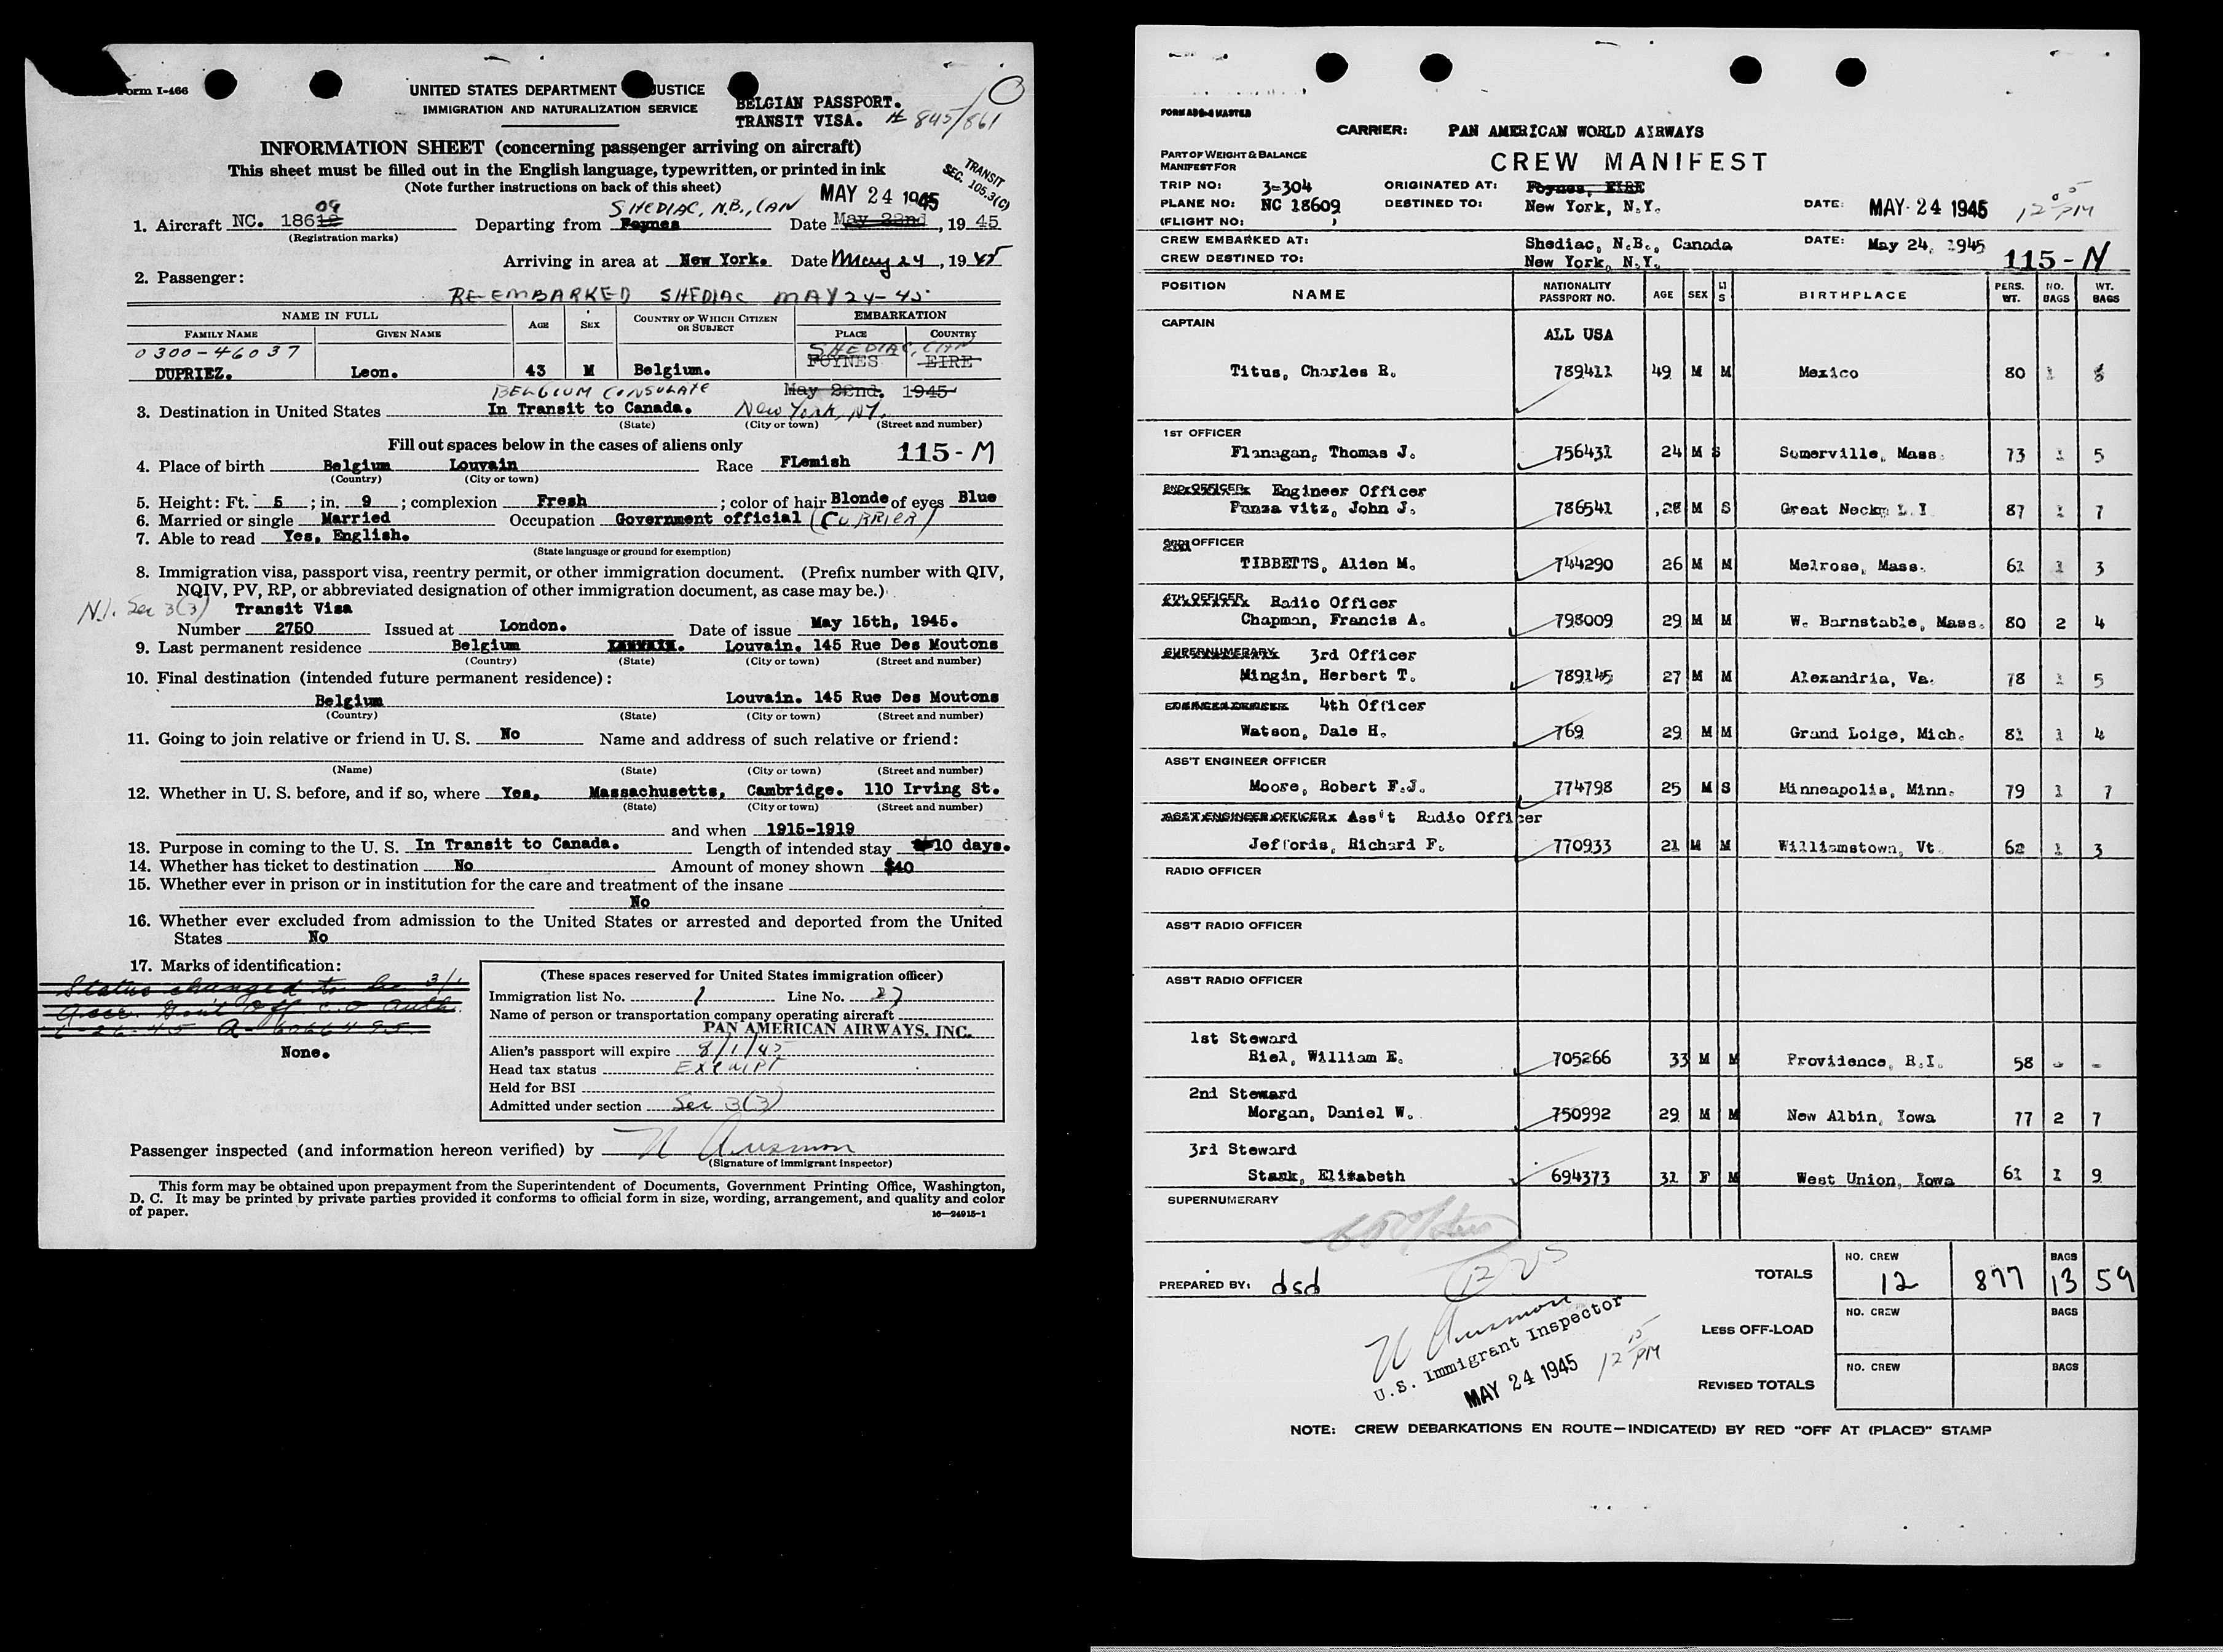 Form I-466
UNITED STATES DEPARTMENT JUSTICE
IMMIGRATION AND NATURALIZATION SERVICE
BELGIAN PASSPORT.
TRANSIT VISA. # 845/861
INFORMATION SHEET (concerning passenger arriving on aircraft)
This sheet must be filled out in the English language, typewritten, or printed in ink
(Note further instructions on back of this sheet)
TRANSIT
SEC. 105.3(C)
MAY 24 1945
SHEDIAC, N.B., CAN
1. Aircraft NC. 18612 09 Departing from Foynes Date May 22nd, 19 45
(Registration marks)
Arriving in area at New York. Date May 24, 19 45
2. Passenger:
RE-EMBARKED SHEDIAC MAY 24-45
NAME IN FULL
FAMILY NAME GIVEN NAME AGE SEX COUNTRY OF WHICH CITIZEN OR SUBJECT EMBARKATION
PLACE COUNTRY
0300-46037 SHEDIAC, CAN
DUPRIEZ. Leon. 43 M Belgium. FOYNES EIRE
BELGIUM CONSULATE May 22nd. 1945
3. Destination in United States In Transit to Canada. New York, NY.
(State) (City or town) (Street and number)
Fill out spaces below in the cases of aliens only 115-M
4. Place of birth Belgium Louvain Race FLemish
(Country) (City or town)
5. Height: Ft. 5; in. 9; complexion Fresh; color of hair Blonde of eyes Blue
6. Married or single Married Occupation Government official (CURRIER)
7. Able to read Yes, English.
(State language or ground for exemption)
8. Immigration visa, passport visa, reentry permit, or other immigration document. (Prefix number with QIV,
NQIV, PV, RP, or abbreviated designation of other immigration document, as case may be.)
N.I. Sec 3(3) Transit Visa
Number 2750 Issued at London. Date of issue May 15th, 1945.
9. Last permanent residence Belgium Louvain. 145 Rue Des Moutons
(Country) (State) (City or town) (Street and number)
10. Final destination (intended future permanent residence):
Belgium Louvain. 145 Rue Des Moutons
(Country) (State) (City or town) (Street and number)
11. Going to join relative or friend in U. S. No Name and address of such relative or friend:
(Name) (State) (City or town) (Street and number)
12. Whether in U. S. before, and if so, where Yes, Massachusetts, Cambridge. 110 Irving St.
(State) (City or town) (Street and number)
and when 1915-1919
13. Purpose in coming to the U. S. In Transit to Canada. Length of intended stay 10 days.
14. Whether has ticket to destination No Amount of money shown $40
15. Whether ever in prison or in institution for the care and treatment of the insane
No
16. Whether ever excluded from admission to the United States or arrested and deported from the United
States No
17. Marks of identification:
Status changed to Sec 3/1
Gov't Off C.O Auth.
None.
(These spaces reserved for United States immigration officer)
Immigration list No. 1 Line No. 27
Name of person or transportation company operating aircraft
PAN AMERICAN AIRWAYS, INC.
Alien's passport will expire 8/1/45
Head tax status EXEMPT
Held for BSI
Admitted under section Sec 3(3)
Passenger inspected (and information hereon verified) by
(Signature of immigrant inspector)
This form may be obtained upon prepayment from the Superintendent of Documents, Government Printing Office, Washington,
D. C. It may be printed by private parties provided it conforms to official form in size, wording, arrangement, and quality and color
of paper.
16—24915-1
CARRIER: PAN AMERICAN WORLD AIRWAYS
PART OF WEIGHT & BALANCE
MANIFEST FOR
CREW MANIFEST
TRIP NO: 3-304 ORIGINATED AT: Foynes, EIRE
PLANE NO: NC 18609 DESTINED TO: New York, N.Y. DATE: MAY 24 1945 12 05 PM
(FLIGHT NO: )
CREW EMBARKED AT: Shediac, N.B., Canada DATE: May 24, 1945
CREW DESTINED TO: New York, N.Y. 115-N
POSITION NAME NATIONALITY PASSPORT NO. AGE SEX M S BIRTHPLACE PERS. WT. NO. BAGS WT. BAGS
CAPTAIN ALL USA
Titus, Charles R. 789411 49 M M Mexico 80 1 8
1ST OFFICER
Flanagan, Thomas J. 756431 24 M S Somerville, Mass. 73 1 5
2ND OFFICER Engineer Officer
Punza vitz, John J. 786541 28 M S Great Neck, L.I. 87 1 7
2nd OFFICER
TIBBETTS, Alien M. 744290 26 M M Melrose, Mass. 61 1 3
4TH OFFICER Radio Officer
Chapman, Francis A. 798009 29 M M W. Barnstable, Mass. 80 2 4
SUPERNUMERARY 3rd Officer
Mingin, Herbert T. 789145 27 M M Alexandria, Va. 78 1 5
ENGINEER OFFICER 4th Officer
Watson, Dale H. 769 29 M M Grand Loige, Mich. 81 1 4
ASS'T ENGINEER OFFICER
Moore, Robert F.J. 774798 25 M S Minneapolis, Minn. 79 1 7
ASS'T ENGINEER OFFICER Ass't Radio Officer
Jefforis, Richard F. 770933 21 M M Williamstown, Vt. 62 1 3
RADIO OFFICER
ASS'T RADIO OFFICER
ASS'T RADIO OFFICER
1st Steward
Riel, William E. 705266 33 M M Providence, R.I. 58 - -
2nd Steward
Morgan, Daniel W. 750992 29 M M New Albin, Iowa 77 2 7
3rd Steward
Stark, Elizabeth 694373 31 F M West Union, Iowa 61 1 9
SUPERNUMERARY
12 US
PREPARED BY: dsd
TOTALS NO. CREW 12 877 BAGS 13 59
LESS OFF-LOAD NO. CREW BAGS
REVISED TOTALS NO. CREW BAGS
U.S. Immigrant Inspector
MAY 24 1945 12 15 PM
NOTE: CREW DEBARKATIONS EN ROUTE—INDICATE(D) BY RED "OFF AT (PLACE)" STAMP